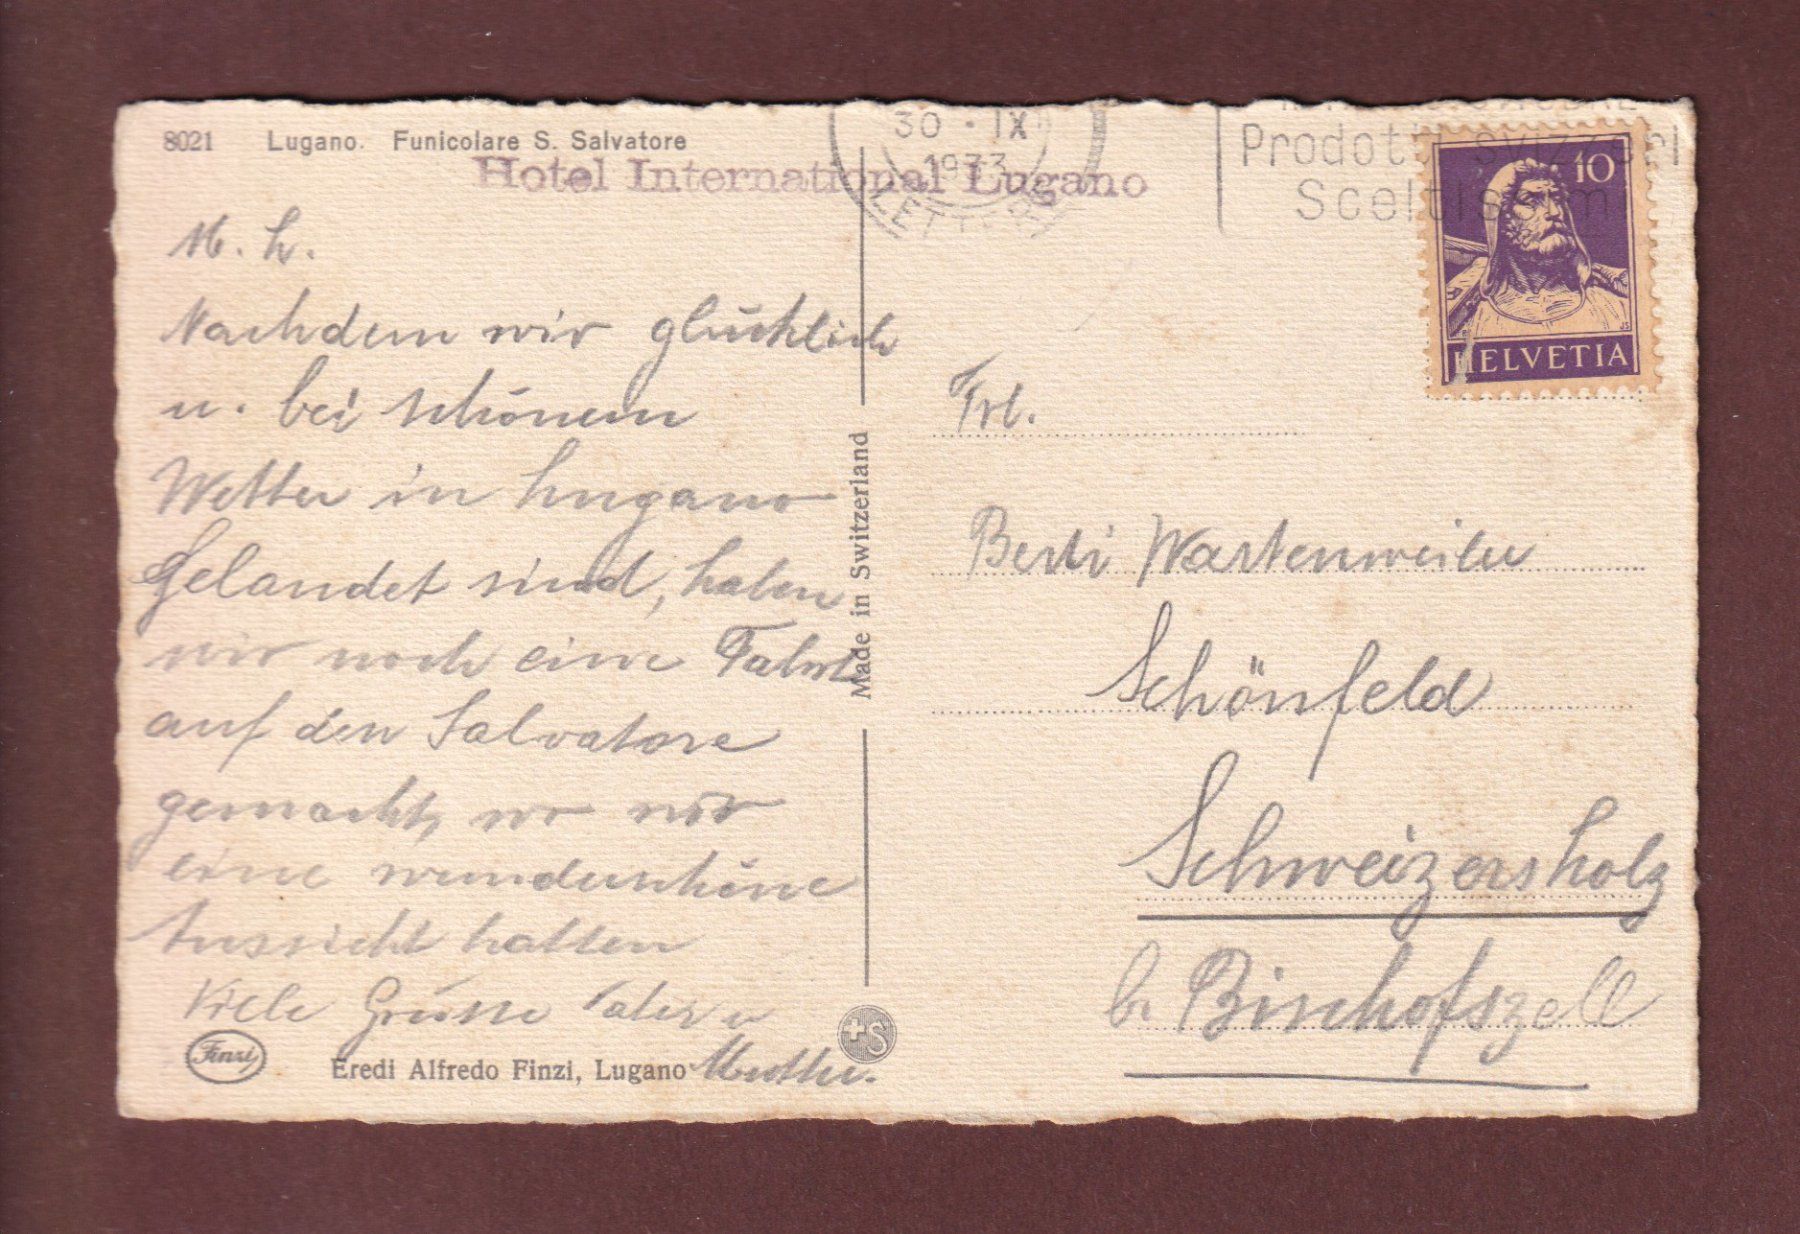 8021 Lugano. Funicolare S. Salvatore
Hotel International Lugano
30 · IX
1933
LETTERE
Prodotti svizzeri
10
HELVETIA
M. L.
Nachdem wir glücklich
u. bei schönem
Wetter in Lugano
Gelandet sind, haben
wir noch eine Fahrt
auf den Salvatore
gemacht, wo wir
eine wunderschöne
Aussicht hatten
Viele Grüsse Vater u
Mutter.
Made in Switzerland
Frl.
Berti Wartenweiler
Schönfeld
Schweizersholz
b. Bischofszell
Finzi
Eredi Alfredo Finzi, Lugano
+S